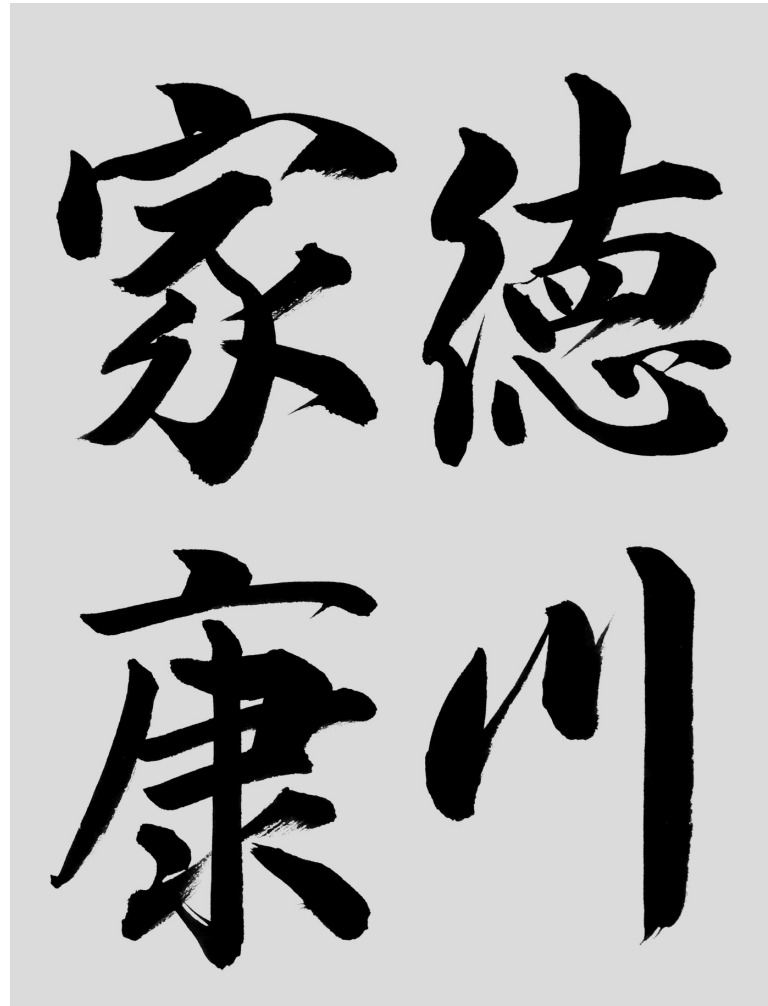 徳川
家康